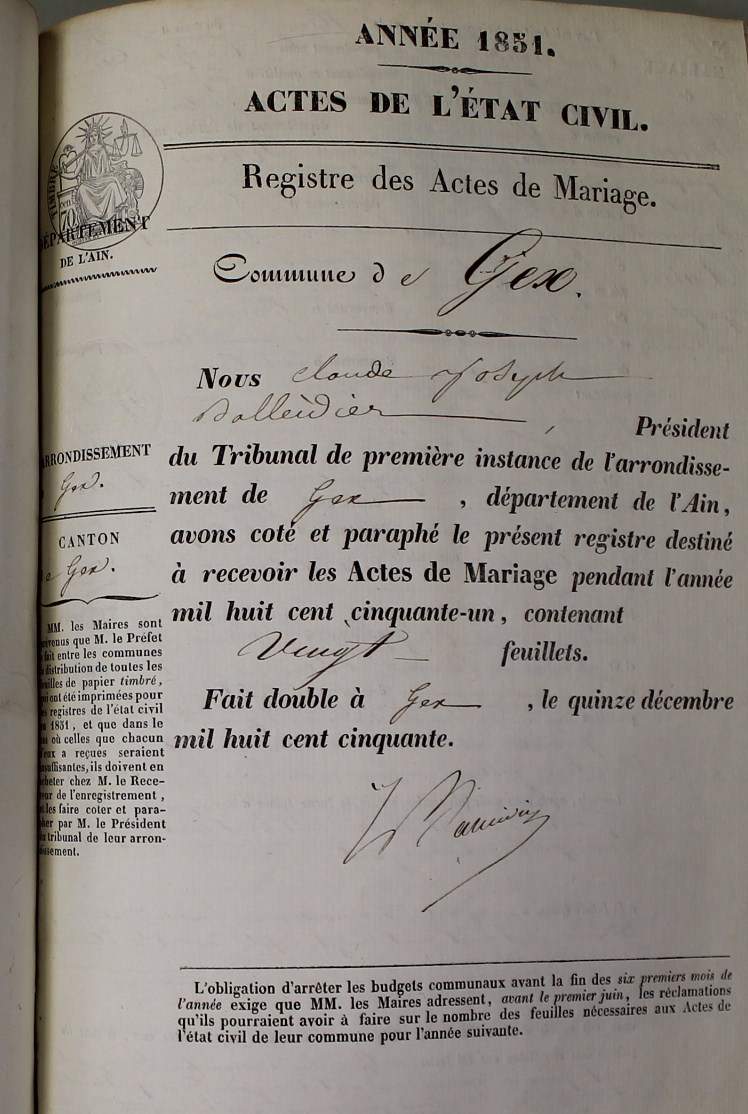 ANNÉE 1851.
ACTES DE L'ÉTAT CIVIL.
Registre des Actes de Mariage.
TIMBRE
70
DÉPARTEMENT
DE L'AIN.
Commune de Gex.
Nous Claude Joseph
, Président
du Tribunal de première instance de l'arrondisse-
ment de Gex , département de l'Ain,
avons coté et paraphé le présent registre destiné
à recevoir les Actes de Mariage pendant l'année
mil huit cent cinquante-un, contenant
Vingt feuillets.
Fait double à Gex , le quinze décembre
mil huit cent cinquante.
ARRONDISSEMENT
Gex.
CANTON
de Gex.
MM. les Maires sont
que M. le Préfet
fait entre les communes
distribution de toutes les
feuilles de papier timbré,
qui ont été imprimées pour
les registres de l'état civil
1851, et que dans le
cas où celles que chacun
d'eux a reçues seraient
insuffisantes, ils doivent en
acheter chez M. le Rece-
veur de l'enregistrement,
et les faire coter et para-
pher par M. le Président
du tribunal de leur arron-
dissement.
L'obligation d'arrêter les budgets communaux avant la fin des six premiers mois de
l'année exige que MM. les Maires adressent, avant le premier juin, les réclamations
qu'ils pourraient avoir à faire sur le nombre des feuilles nécessaires aux Actes de
l'état civil de leur commune pour l'année suivante.